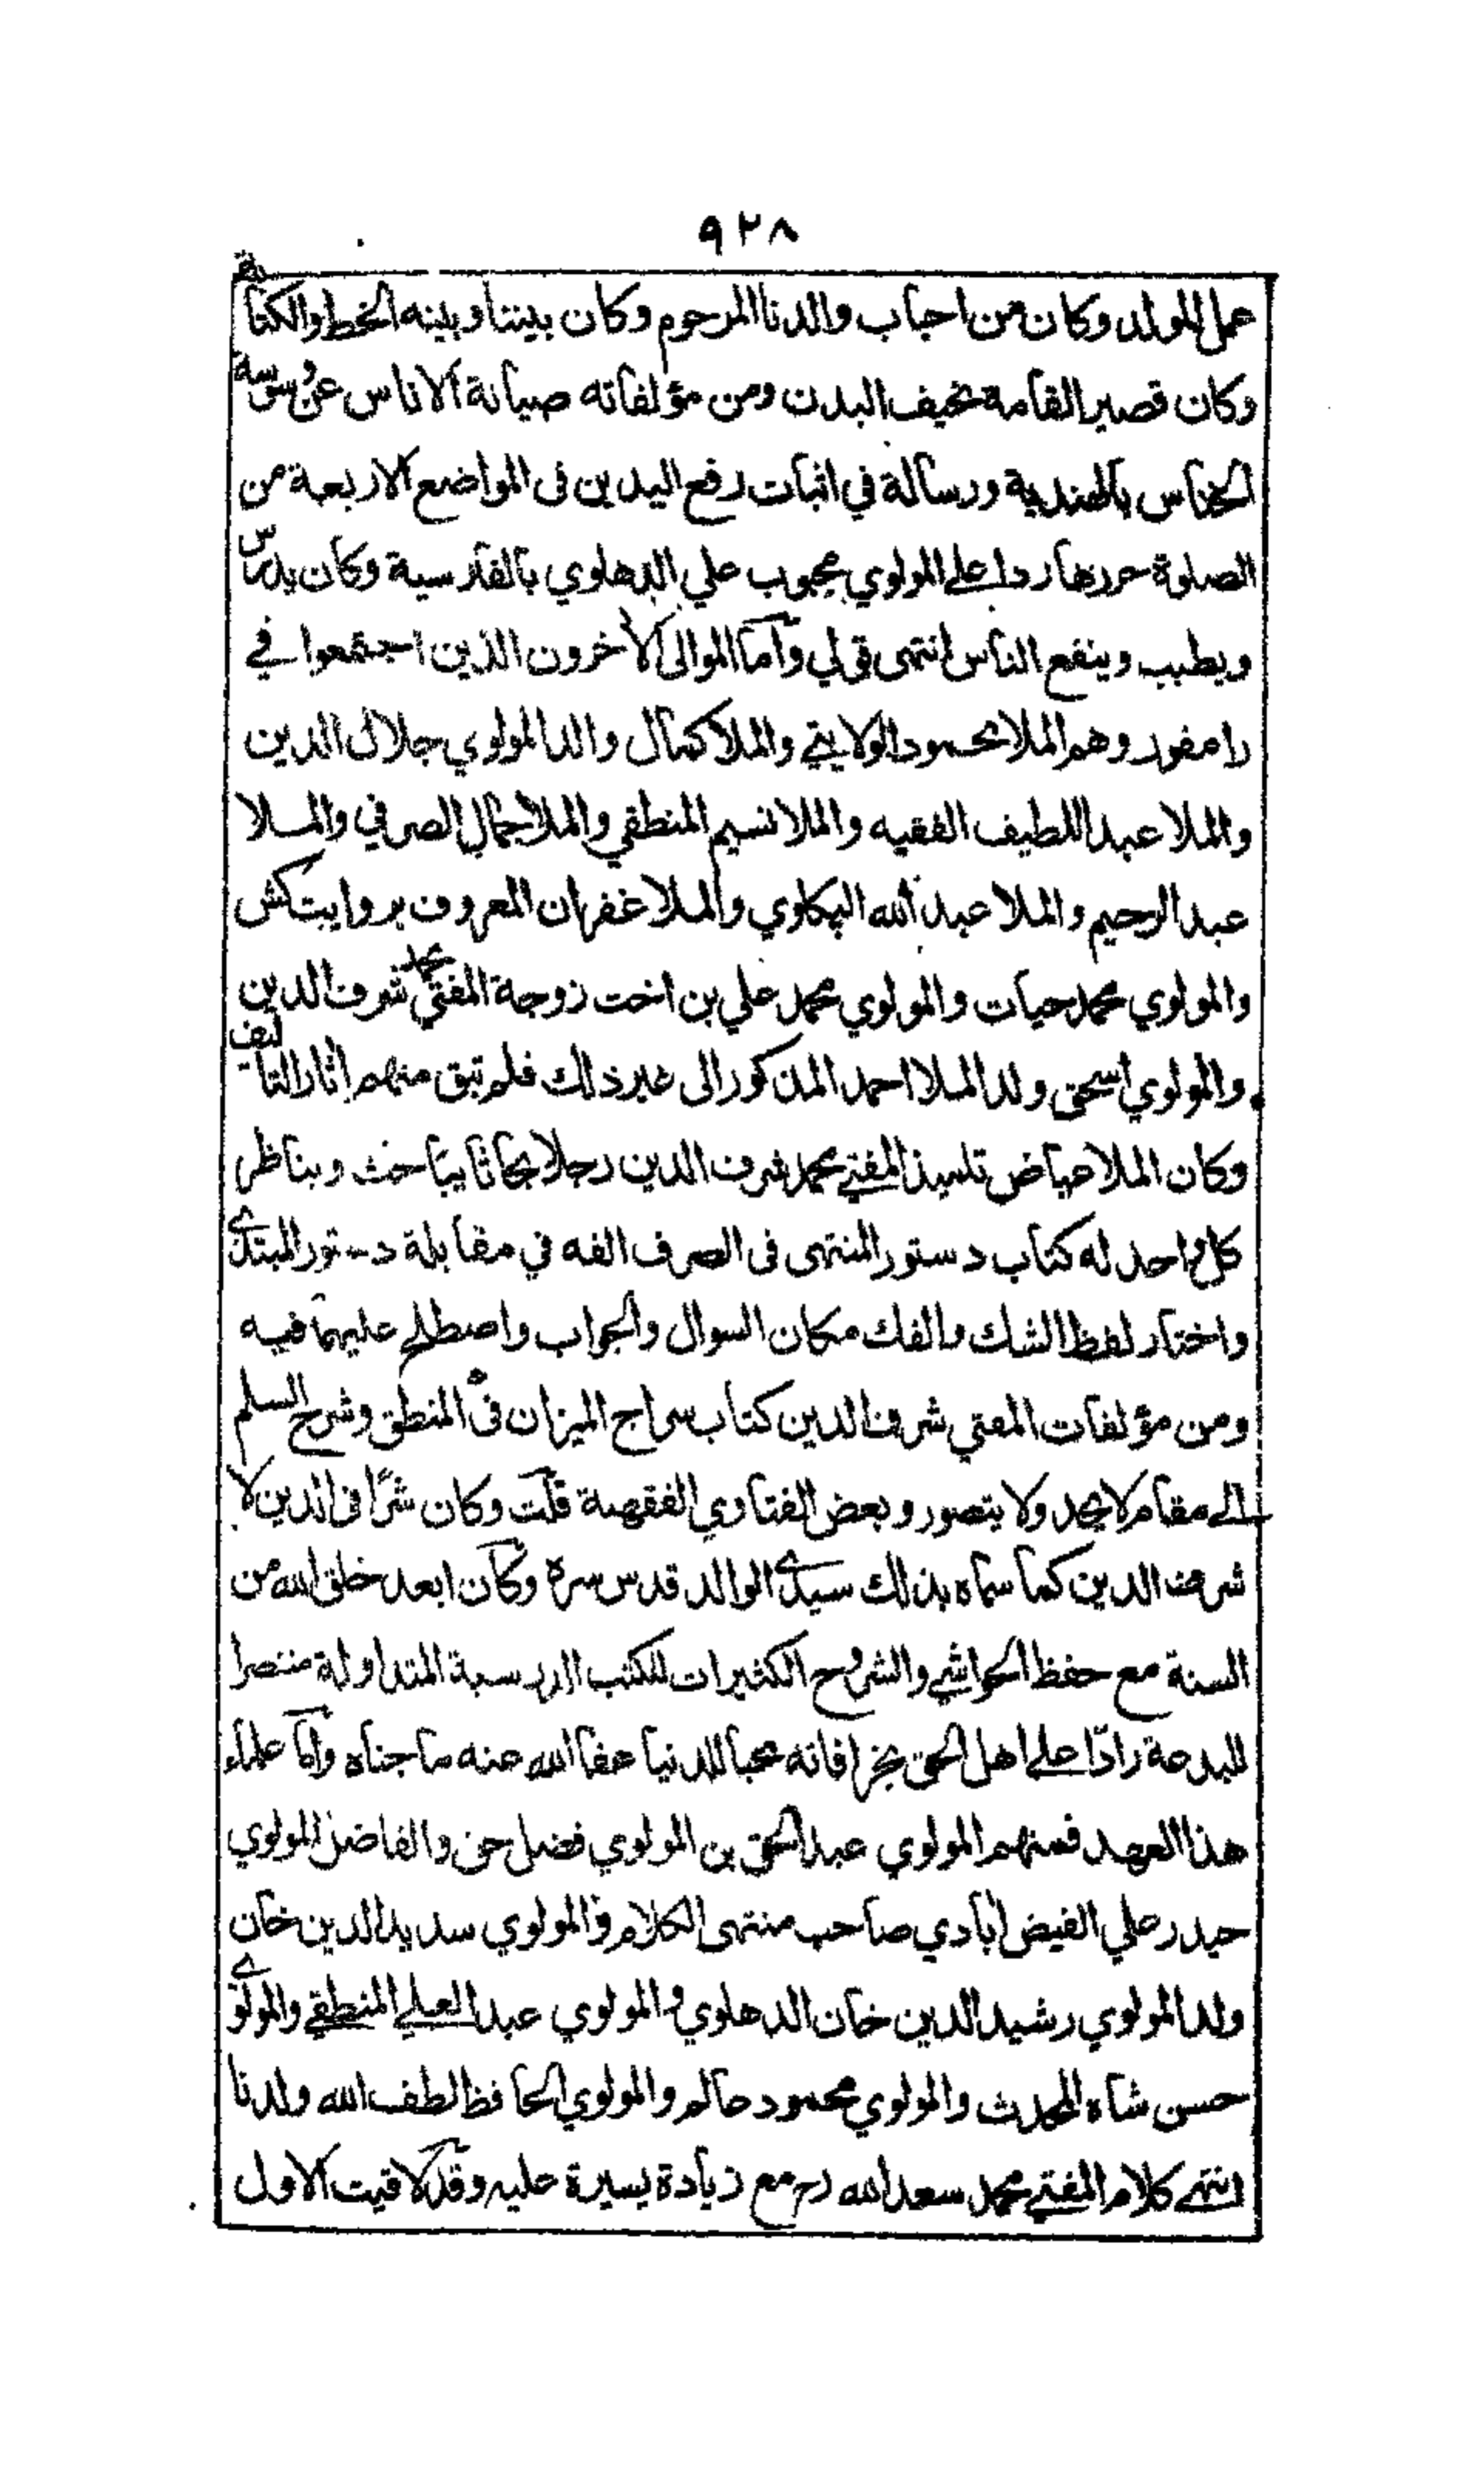 ٩٢٨
عمل المولد وكان من احباب والدنا المرحوم وكان بيننا وبينه الخط والكتابة
وكان قصير القامة نحيف البدن ومن مؤلفاته صيانة الاناس عن وسوسة
الخناس بالهندية ورسالة في اثبات رفع اليدين فى المواضع الاربعة من
الصلوة حررها ردا على المولوي محبوب علي الدهلوي بالفارسية وكان يدرس
ويطبب وينفع الناس انتهى قولي وأما الموالى الأخرون الذين اجتمعوا في
رامفور وهم الملا محمود الولايتي والملا كمال والد المولوي جلال الدين
والملا عبد اللطيف الفقيه والملا نسيم المنطقي والملا جمال الصرفي والملا
عبد الرحيم والملا عبد الله البكاوي والملا غفران المعروف بروايتكش
والمولوي محمد حيات والمولوي محمد علي بن اخت زوجة المفتي محمد شرف الدين
والمولوي اسحق ولد الملا احمد المذكور الى غير ذلك فلم تبق منهم اثار التأليف
وكان الملا عياض تلميذ المفتي محمد شرف الدين رجلا بحاثا يباحث ويناظر
كل واحد له كتاب دستور المنتهى فى الصرف الفه في مقابلة دستور المبتدي
واختار لفظ الشك والفك مكان السوال والجواب واصطلح عليهما فيه
ومن مؤلفات المفتي شرف الدين كتاب سراج الميزان فى المنطق وشرح السلم
الى مقام لا يحد ولا يتصور وبعض الفتاوي الفقهية قلت وكان شرًا فى الدين لا
شرف الدين كما سماه بذلك سيدي الوالد قدس سره وكان ابعد خلق الله من
السنة مع حفظ الحواشي والشروح الكثيرات للكتب الدرسية المتداولة منتصرا
للبدعة رادّا على اهل الحق بخرافاته محبا للدنيا عفا الله عنه ما جناه وأما علماء
هذا العهد فمنهم المولوي عبد الحق بن المولوي فضل حق والفاضل المولوي
حيدر علي الفيض أبادي صاحب منتهى الكلام والمولوي سديد الدين خان
ولد المولوي رشيد الدين خان الدهلوي والمولوي عبد العلي المنطقي والمولوي
حسن شاه المحدث والمولوي محمود عالم والمولوي الحافظ لطف الله ولدنا
انتهى كلام المفتي محمد سعد الله رح مع زيادة يسيرة عليه وقد لاقيت الاول